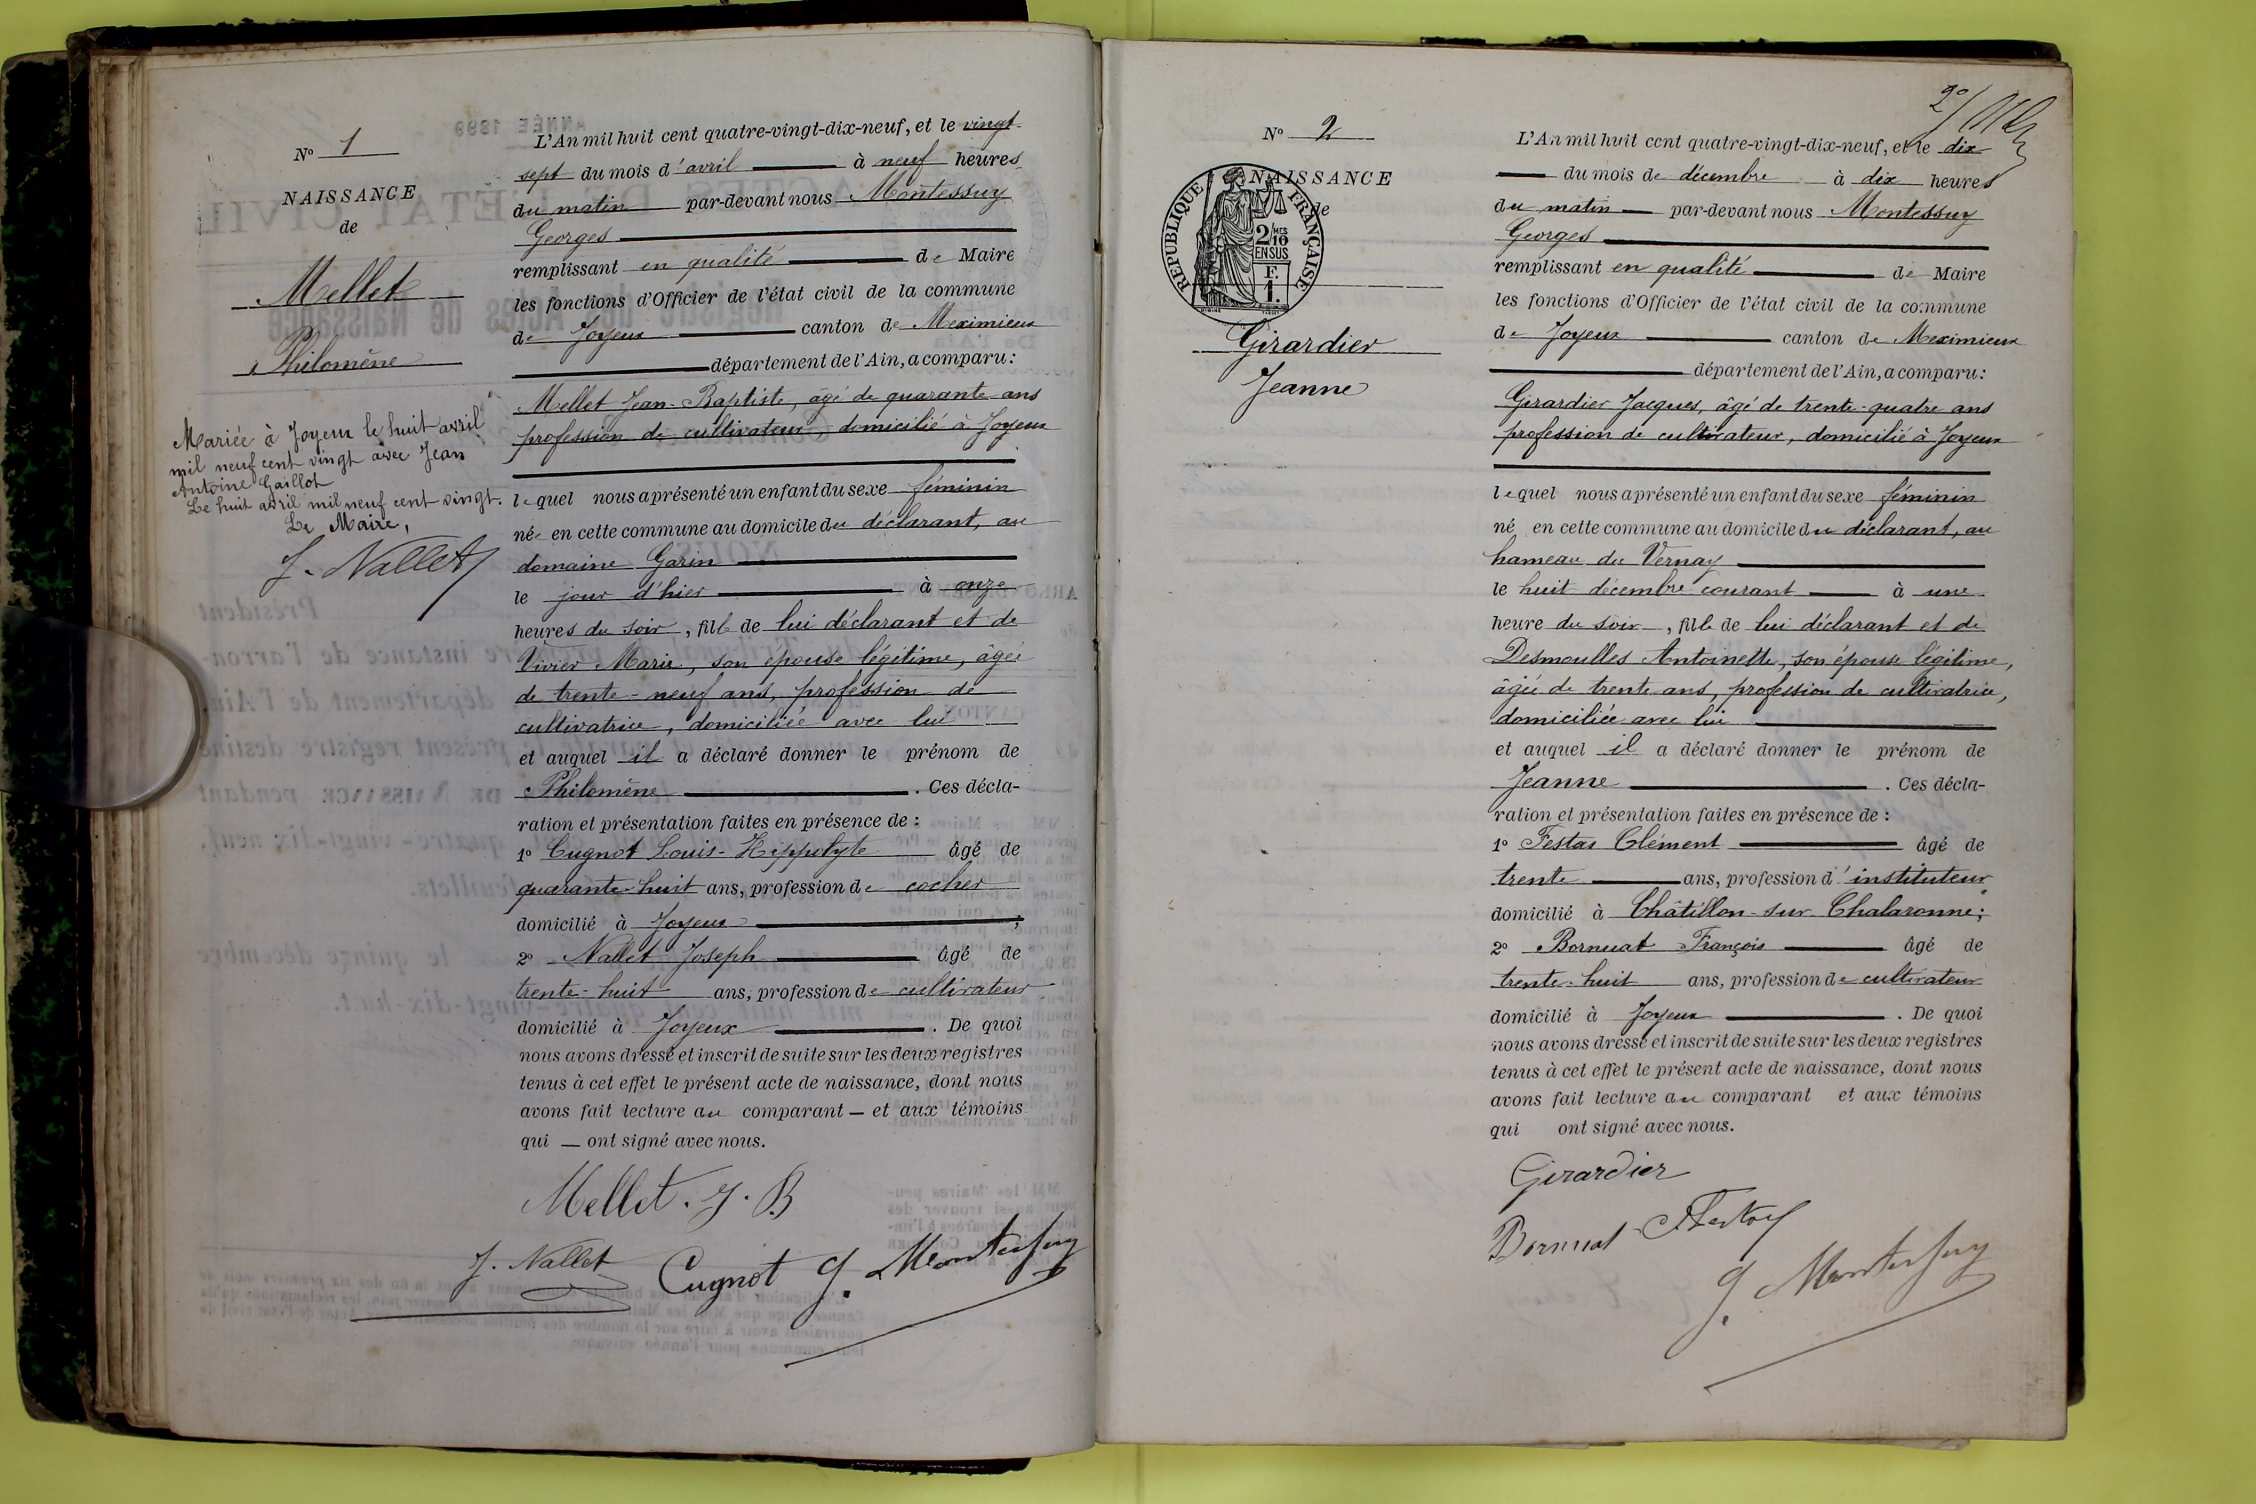 N° 1
NAISSANCE
de
Mellet
Philomène
Mariée à Joyeux le huit avril
mil neuf cent vingt avec Jean
Antoine Gaillot
Le huit avril mil neuf cent vingt.
Le Maire,
J. Nallet
L'An mil huit cent quatre-vingt-dix-neuf, et le vingt
sept du mois d'avril à neuf heures
du matin par-devant nous Montessuy
Georges
remplissant en qualité de Maire
les fonctions d'Officier de l'état civil de la commune
de Joyeux canton de Meximieux
département de l'Ain, a comparu :
Mellet Jean-Baptiste, âgé de quarante ans
profession de cultivateur domicilié à Joyeux
lequel nous a présenté un enfant du sexe féminin
née en cette commune au domicile du déclarant, au
domaine Garin
le jour d'hier à onze
heures du soir, fille de lui déclarant et de
Vivier Marie, son épouse légitime, âgée
de trente-neuf ans, profession de
cultivatrice, domiciliée avec lui
et auquel il a déclaré donner le prénom de
Philomène. Ces décla-
ration et présentation faites en présence de :
1° Cugnot Louis-Hippolyte âgé de
quarante-huit ans, profession de cocher
domicilié à Joyeux ;
2° Nallet Joseph âgé de
trente-huit ans, profession de cultivateur
domicilié à Joyeux. De quoi
nous avons dressé et inscrit de suite sur les deux registres
tenus à cet effet le présent acte de naissance, dont nous
avons fait lecture au comparant — et aux témoins
qui — ont signé avec nous.
Mellet. J. B
J. Nallet Cugnot G. Montessuy
2°/
N° 2
NAISSANCE
de
RÉPUBLIQUE FRANÇAISE
2/10 MES
EN SUS
F.
1.
Girardier
Jeanne
L'An mil huit cent quatre-vingt-dix-neuf, et le dix
du mois de décembre à dix heures
du matin par-devant nous Montessuy
Georges
remplissant en qualité de Maire
les fonctions d'Officier de l'état civil de la commune
de Joyeux canton de Meximieux
département de l'Ain, a comparu :
Girardier Jacques, âgé de trente-quatre ans
profession de cultivateur, domicilié à Joyeux
lequel nous a présenté un enfant du sexe féminin
né en cette commune au domicile du déclarant, au
hameau du Vernay
le huit décembre courant à une
heure du soir, fille de lui déclarant et de
Desmoulles Antoinette, son épouse légitime,
âgée de trente ans, profession de cultivatrice,
domiciliée avec lui
et auquel il a déclaré donner le prénom de
Jeanne. Ces décla-
ration et présentation faites en présence de :
1° Festas Clément âgé de
trente ans, profession d'instituteur
domicilié à Châtillon-sur-Chalaronne ;
2° Bornuat François âgé de
trente-huit ans, profession de cultivateur
domicilié à Joyeux. De quoi
nous avons dressé et inscrit de suite sur les deux registres
tenus à cet effet le présent acte de naissance, dont nous
avons fait lecture au comparant et aux témoins
qui ont signé avec nous.
Girardier
Bornuat
G. Montessuy